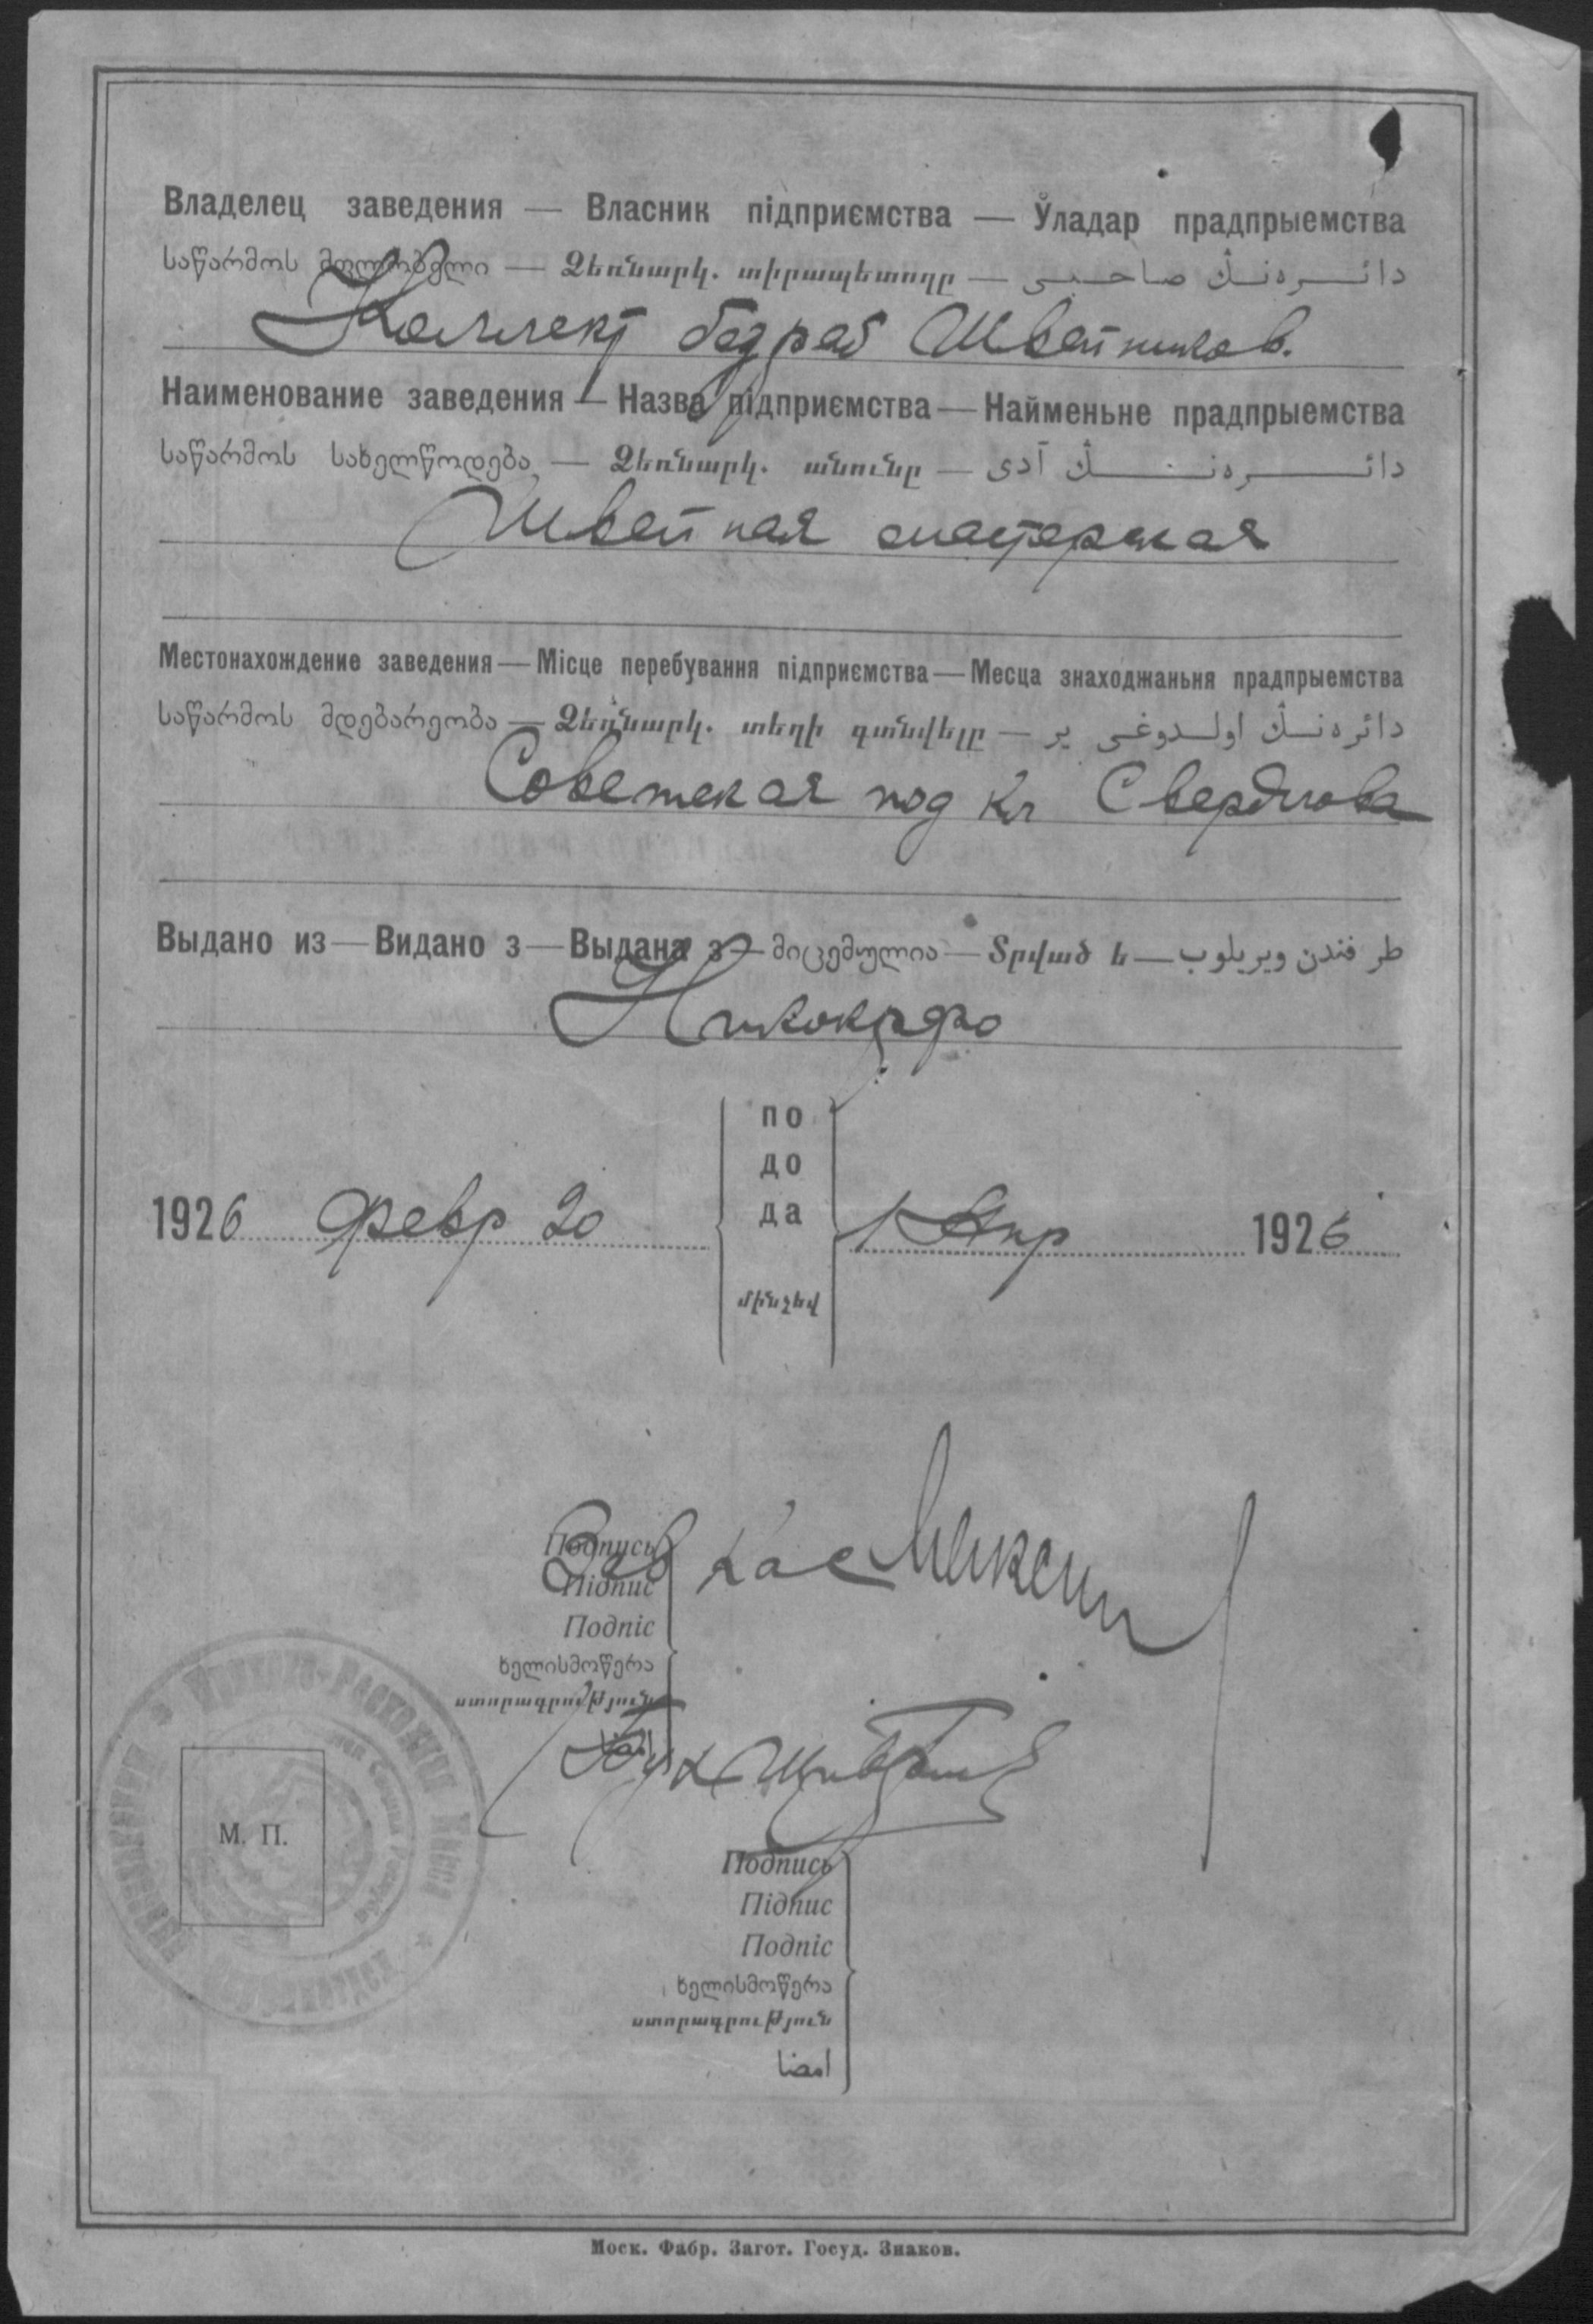 Владелец заведения — Власник підприємства — Ўладар прадпрыемства
საწარმოს მფლობელი — Ձեռնարկ. տիրապետողը — دائره‌نڭ صاحبی
Коллект безраб Швейников.
Наименование заведения — Назва підприємства — Найменьне прадпрыемства
საწარმოს სახელწოდება — Ձեռնարկ. անունը — دائره‌نڭ آدی
Швейная мастерская
Местонахождение заведения — Місце перебування підприємства — Месца знаходжаньня прадпрыемства
საწარმოს მდებარეობა — Ձեռնարկ. տեղի գտնվելը — دائره‌نڭ اولدوغی یر
Советская под Кл Свердлова
Выдано из — Видано з — Выдана з — მიცემულია — Տրված է — طرفندن ویریلوب
по
до
да
1926 Февр 20 1 Апр 1926
մինչեվ
Зав Кас
Подпись
Підпис
Подпіс
ხელისმოწერა
ստորագրություն
امضا
Бух
М. П.
Подпись
Підпис
Подпіс
ხელისმოწერა
ստորագրություն
امضا
Моск. Фабр. Загот. Госуд. Знаков.